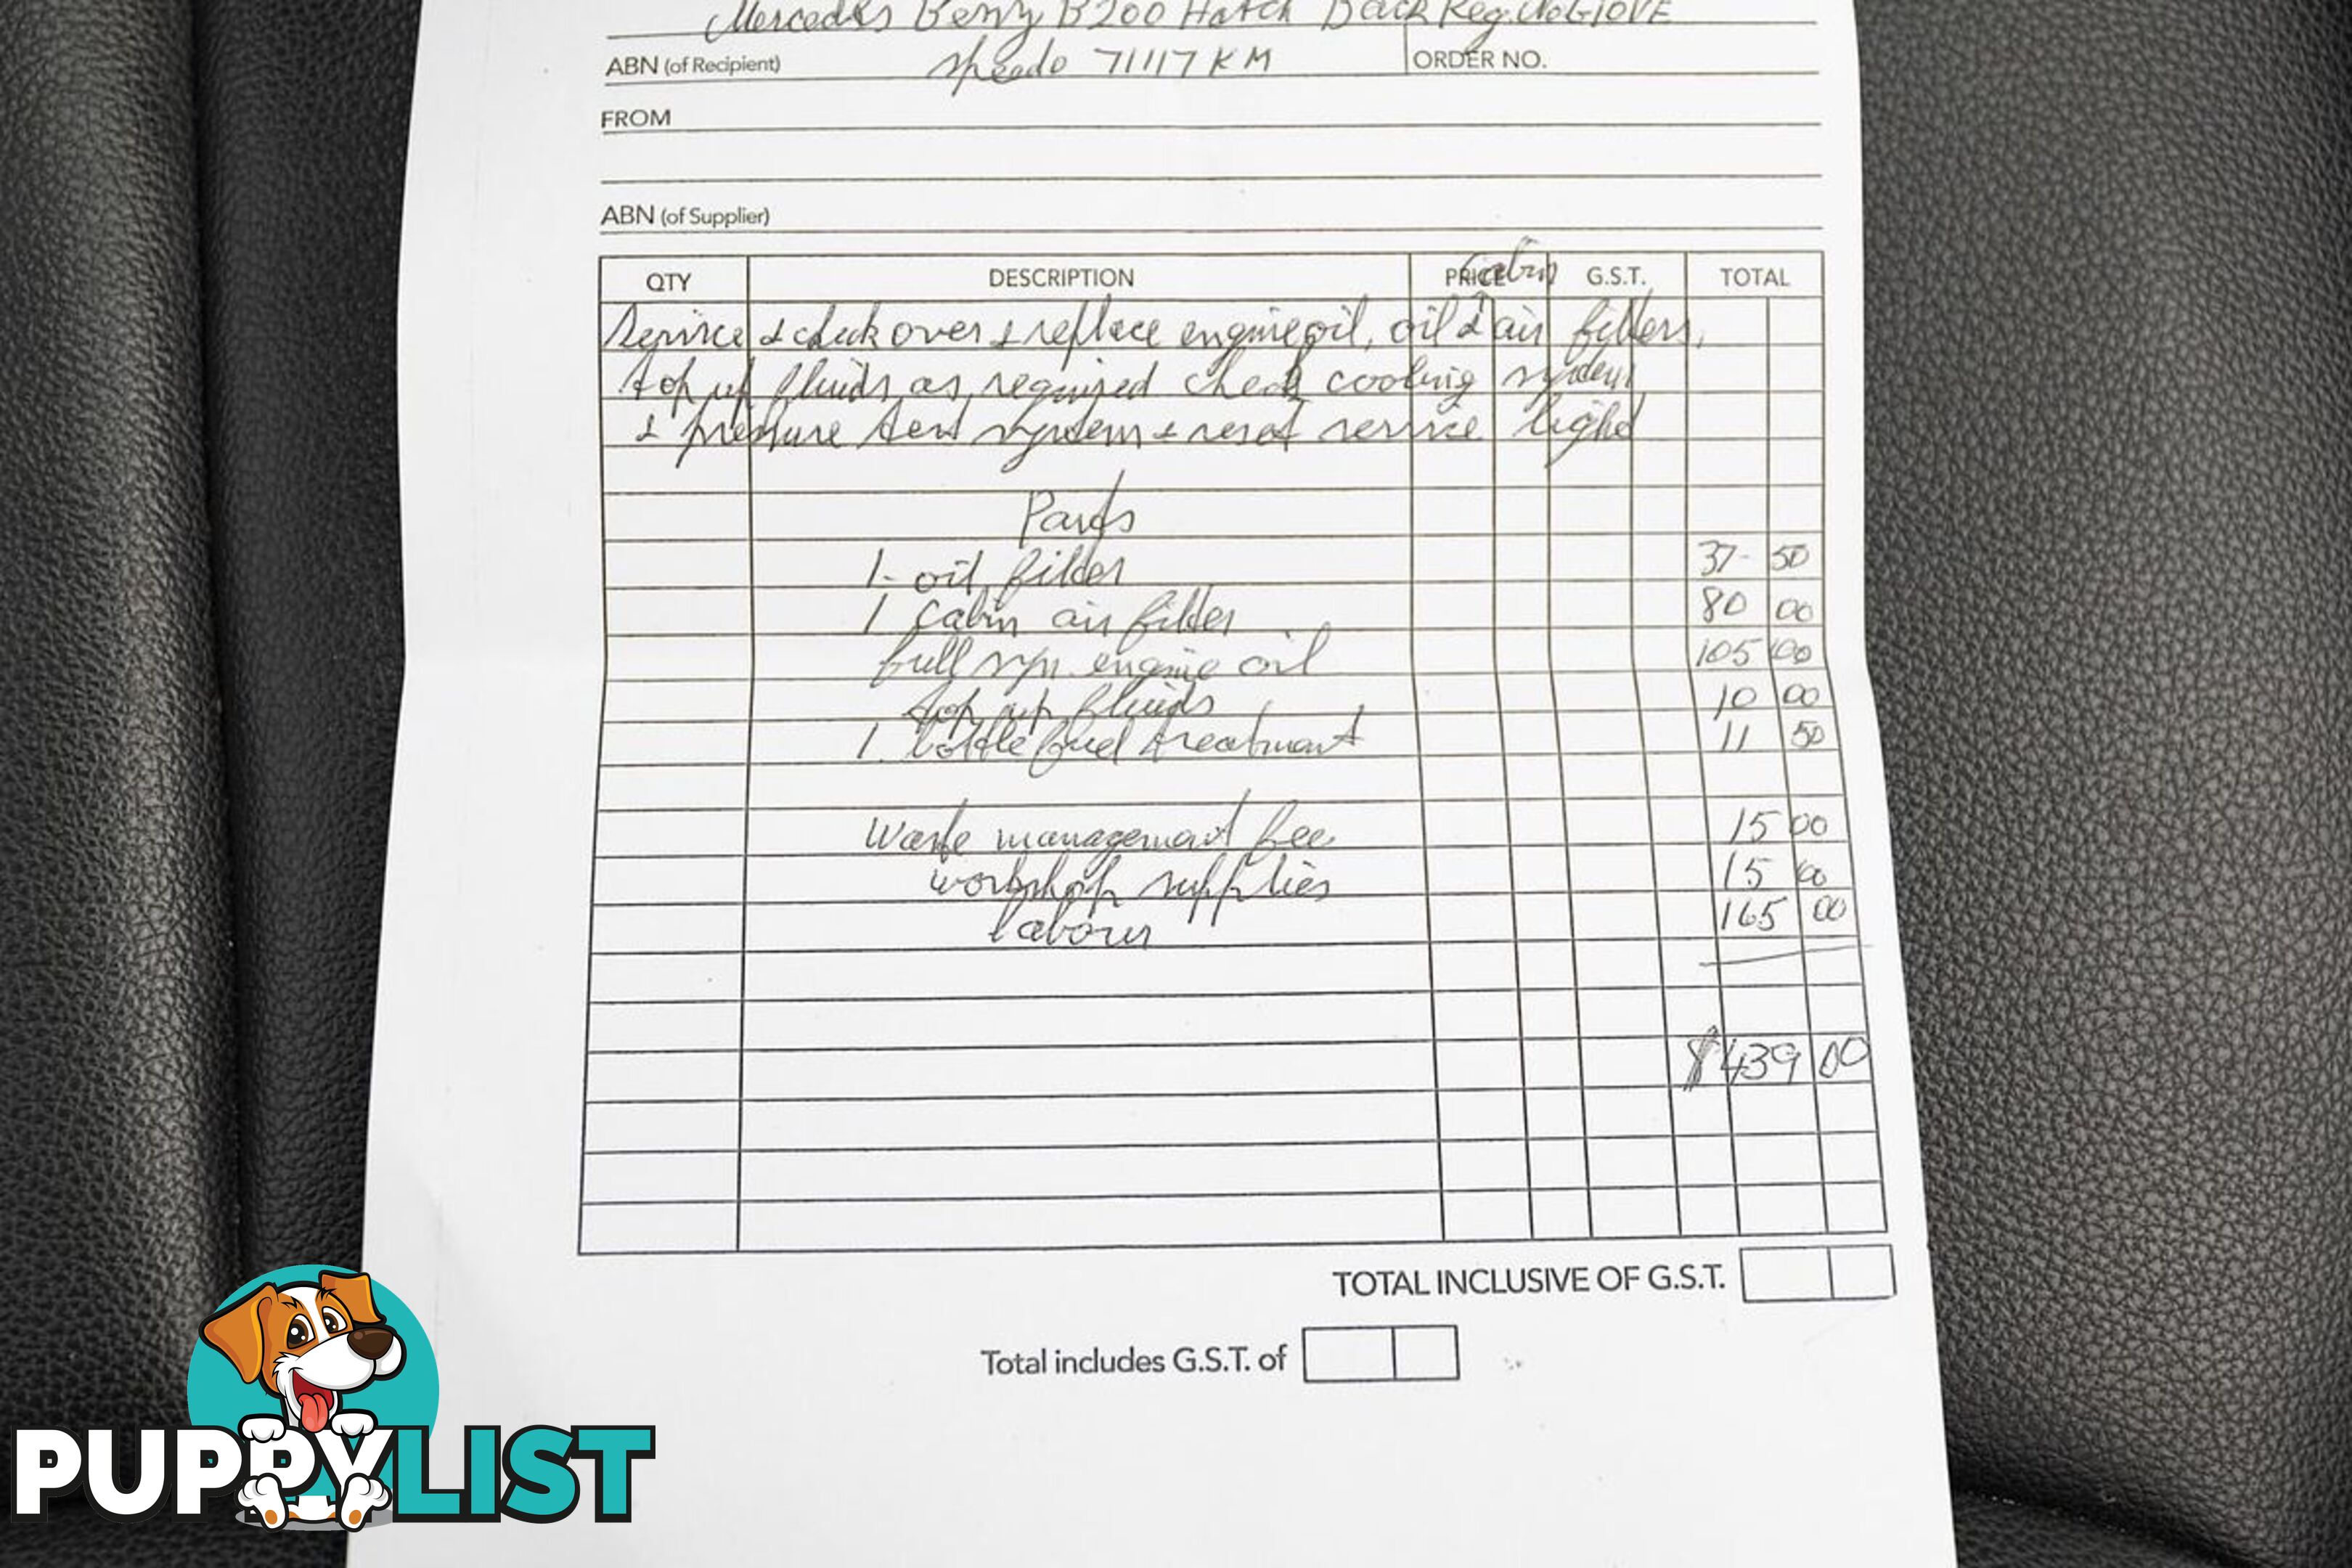 Mercedes Benz B200 Hatch Back Reg. No
ABN (of Recipient) speedo 71117 KM ORDER NO.
FROM
ABN (of Supplier)
QTY DESCRIPTION PRICE G.S.T. TOTAL
cabin
Service & check over & replace engine oil, oil & air filters,
top up fluids as required check cooling system
& pressure test system & reset service light
Parts
1- oil filter 37-50
1 cabin air filter 80 00
full syn engine oil 105 00
top up fluids 10 00
1. bottle fuel treatment 11 50
Waste management fee 15 00
workshop supplies 15 00
labour 165 00
$439 00
TOTAL INCLUSIVE OF G.S.T.
Total includes G.S.T. of
PUPPYLIST